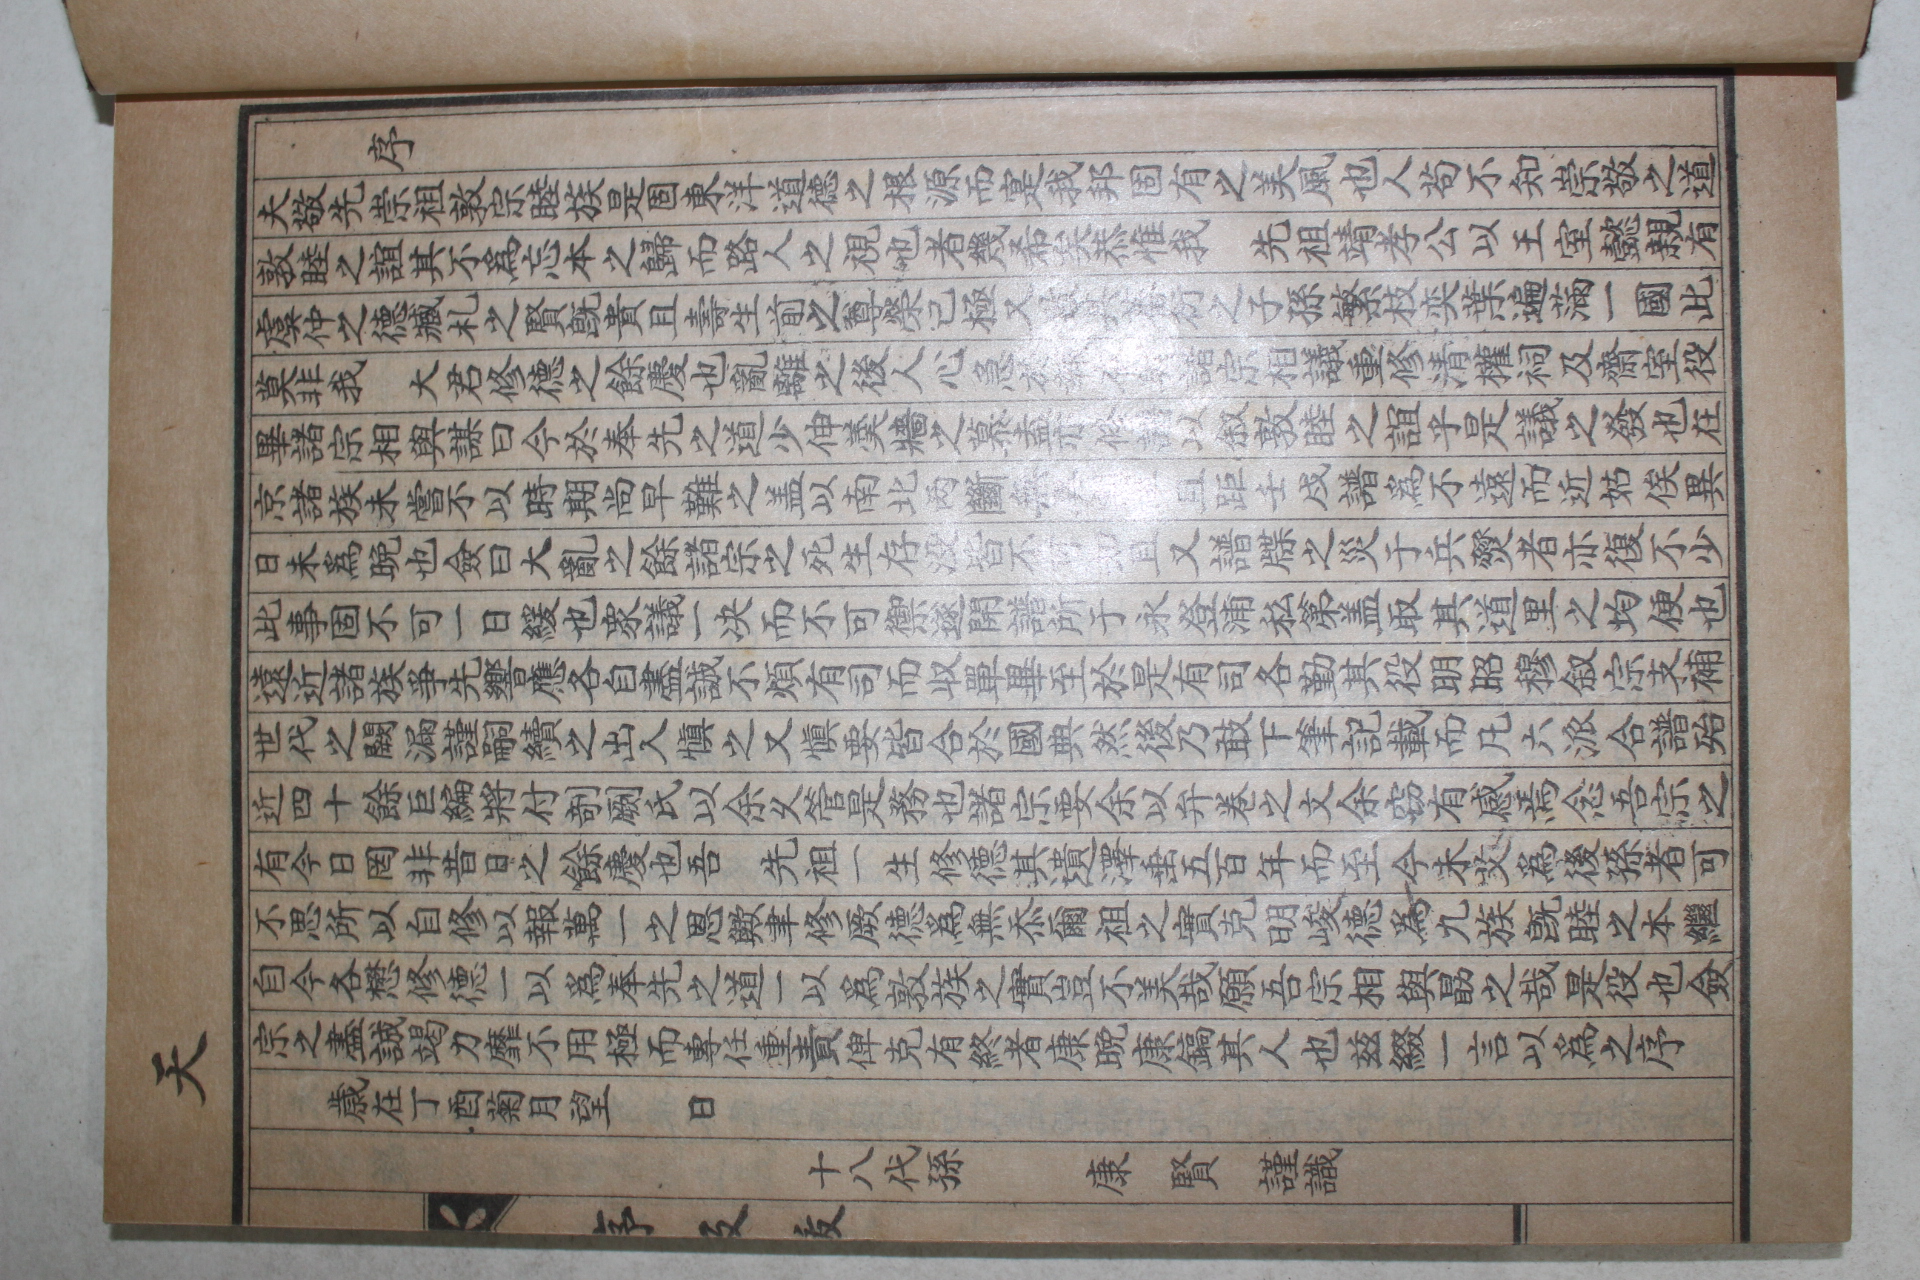 天
序
夫敬先崇祖敦宗睦族是固東洋道德之根源而寔我邦固有之美風也人苟不知崇敬之道
敦睦之誼其不爲忘本之歸而路人之視也者幾希矣恭惟我 先祖靖孝公以王室懿親有
虞仲之德臧札之賢旣貴且壽生前之尊榮已極又 其蕃衍之子孫繁枝奕葉遍滿一國此
莫非我 大君修德之餘慶也亂離之後人心急於 諸宗相議重修清權祠及齋室役
畢諸宗相與謀曰今於奉先之道少伸羹牆之慕盍亦修譜以叙敦睦之誼乎是議之發也在
京諸族未嘗不以時期尚早難之盖以南北两斷無 且距壬戌譜爲不遠而近姑俟異
日未爲晩也僉曰大亂之餘諸宗之死生存没皆不可知且又譜牒之災于兵燹者亦復不少
此事固不可一日緩也衆議一决而不可禦遂開譜所于永登浦私第盖取其道里之均便也
遠近諸族爭先響應各自盡誠不煩有司而収單畢至於是有司各勤其役明昭穆叙宗支補
世代之闕漏謹嗣續之出入愼之又愼要皆合於國典然後乃敢下筆記載而凡六派合譜殆
近四十餘巨編將付剞劂氏以余久管是務也諸宗要余以弁卷之文余窃有感焉念吾宗之
有今日罔非昔日之餘慶也吾 先祖一生修德其遺澤垂五百年而至今未艾爲後孫者可
不思所以自修以報萬一之恩歟聿修厥德爲無忝爾祖之實克明峻德爲九族旣睦之本繼
自今各懋修德一以爲奉先之道一以爲敦族之實豈不美哉願吾宗相與勗之哉是役也僉
宗之盡誠竭力靡不用極而專任重責俾克有終者康晩康鎬其人也玆綴一言以爲之序
歲在丁酉菊月望 日
十八代孫 康賢 謹識